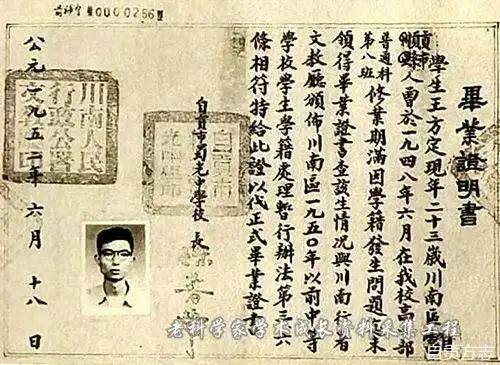 0000286
畢業證明書
學生王方定現年二十三歲川南區
人曾於一九四八年六月在我校高中部
普通科
第八班 修業期滿因學籍發生問題迄未
領得畢業證書查該生情況與川南行署
文教廳頒佈川南區一九五〇年以前中等
學校學生學籍處理暫行辦法第三六
條相符特給此證以代正式畢業證書
自貢市蜀光中學校 長
公元一九五一年六月十八日
川南人民
行政公署
自貢市
老科学家学术成长资料采集工程
自贡方志